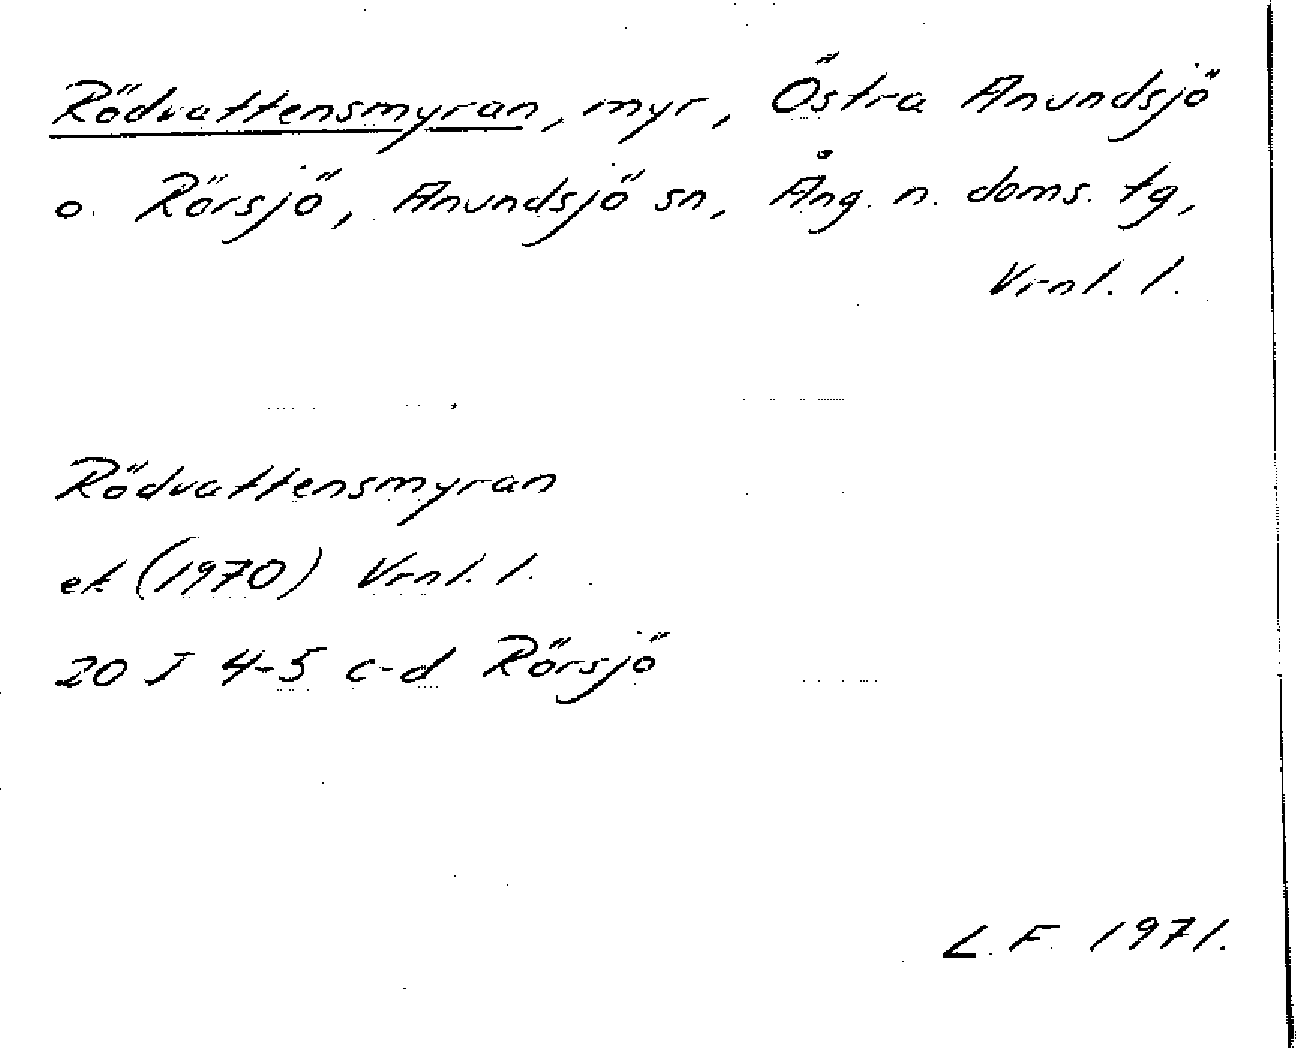 Rödvattensmyran, myr, Östra Anundsjö
o. Rörsjö, Anundsjö sn, Ång. n. doms. tg,
Vrnl. l.
Rödvattensmyran
ek (1970) Vrnl. l.
20 I 4-5 c-d Rörsjö
L. F. 1971.